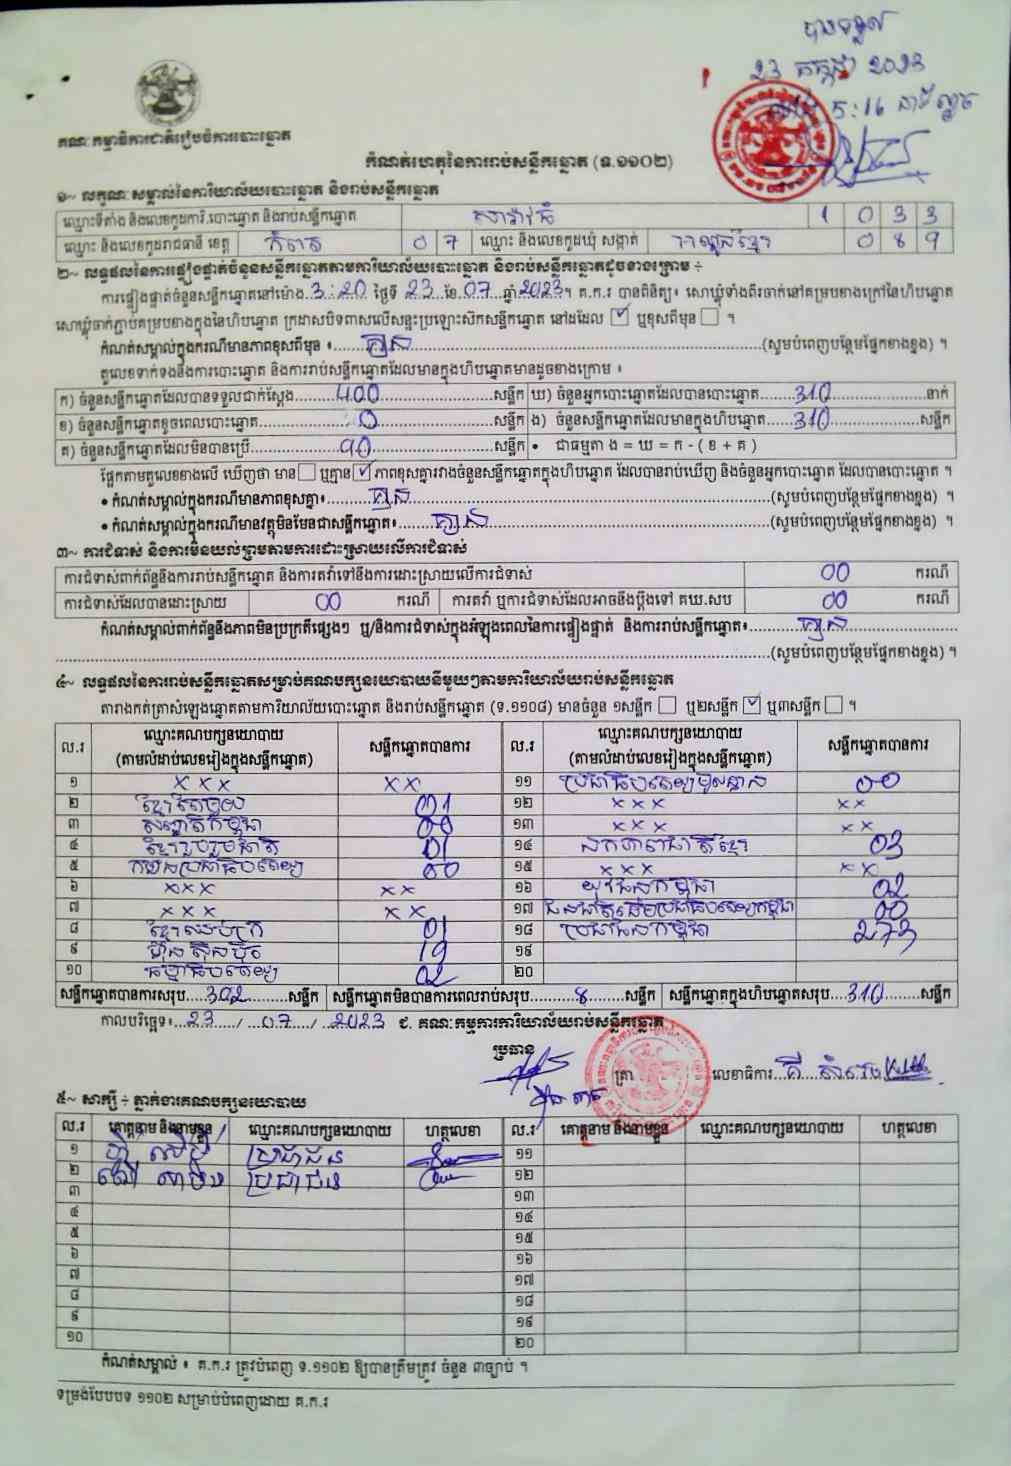 បានទទួល
23 កក្កដា 2023
ម៉ោង 5:16 នាទីល្ងាច
គណៈកម្មាធិការជាតិរៀបចំការបោះឆ្នោត
កំណត់ហេតុនៃការរាប់សន្លឹកឆ្នោត (ទ.១១០២)
១~ លក្ខណៈសម្គាល់នៃការិយាល័យបោះឆ្នោត និងរាប់សន្លឹកឆ្នោត
ឈ្មោះទីតាំង និងលេខកូដការិ.បោះឆ្នោត និងរាប់សន្លឹកឆ្នោត 1 0 3 3
ឈ្មោះ និងលេខកូដរាជធានី ខេត្ត កំពត 0 7 ឈ្មោះ និងលេខកូដឃុំ សង្កាត់ 0 8 9
២~ លទ្ធផលនៃការផ្ទៀងផ្ទាត់ចំនួនសន្លឹកឆ្នោតតាមការិយាល័យបោះឆ្នោត និងរាប់សន្លឹកឆ្នោតដូចខាងក្រោម ÷
ការផ្ទៀងផ្ទាត់ចំនួនសន្លឹកឆ្នោតនៅម៉ោង 3:20 ថ្ងៃទី 23 ខែ 07 ឆ្នាំ 2023។ គ.ក.រ បានពិនិត្យ៖ សោឃ្លុំទាំងពីរចាក់នៅគម្របខាងក្រៅនៃហិបឆ្នោត
សោឃ្លុំចាក់ភ្ជាប់គម្របខាងក្នុងនៃហិបឆ្នោត ក្រដាសបិទពាសលើសន្ទះប្រឡោះសិកសន្លឹកឆ្នោត នៅដដែល ☑ ឬខុសពីមុន ☐ ។
កំណត់សម្គាល់ក្នុងករណីមានភាពខុសពីមុន ៖ គ្មាន (សូមបំពេញបន្ថែមផ្នែកខាងខ្នង) ។
តួលេខទាក់ទងនឹងការបោះឆ្នោត និងការរាប់សន្លឹកឆ្នោតដែលមានក្នុងហិបឆ្នោតមានដូចខាងក្រោម ៖
ក) ចំនួនសន្លឹកឆ្នោតដែលបានទទួលជាក់ស្តែង 400 សន្លឹក ឃ) ចំនួនអ្នកបោះឆ្នោតដែលបានបោះឆ្នោត 310 នាក់
ខ) ចំនួនសន្លឹកឆ្នោតខូចពេលបោះឆ្នោត 0 សន្លឹក ង) ចំនួនសន្លឹកឆ្នោតដែលមានក្នុងហិបឆ្នោត 310 សន្លឹក
គ) ចំនួនសន្លឹកឆ្នោតដែលមិនបានប្រើ 90 សន្លឹក • ជាធម្មតា ង = ឃ = ក - ( ខ + គ )
ផ្អែកតាមតួលេខខាងលើ ឃើញថា មាន ☐ ឬគ្មាន ☑ ភាពខុសគ្នារវាងចំនួនសន្លឹកឆ្នោតក្នុងហិបឆ្នោត ដែលបានរាប់ឃើញ និងចំនួនអ្នកបោះឆ្នោត ដែលបានបោះឆ្នោត ។
• កំណត់សម្គាល់ក្នុងករណីមានភាពខុសគ្នា៖ គ្មាន (សូមបំពេញបន្ថែមផ្នែកខាងខ្នង) ។
• កំណត់សម្គាល់ក្នុងករណីមានវត្ថុមិនមែនជាសន្លឹកឆ្នោត៖ គ្មាន (សូមបំពេញបន្ថែមផ្នែកខាងខ្នង) ។
៣~ ការជំទាស់ និងការមិនយល់ព្រមតាមការដោះស្រាយលើការជំទាស់
ការជំទាស់ពាក់ព័ន្ធនឹងការរាប់សន្លឹកឆ្នោត និងការតវ៉ាទៅនឹងការដោះស្រាយលើការជំទាស់ 00 ករណី
ការជំទាស់ដែលបានដោះស្រាយ 00 ករណី ការតវ៉ា ឬការជំទាស់ដែលអាចនឹងប្តឹងទៅ គឃ.សប 00 ករណី
កំណត់សម្គាល់ពាក់ព័ន្ធនឹងភាពមិនប្រក្រតីផ្សេងៗ ឬ/និងការជំទាស់ក្នុងអំឡុងពេលនៃការផ្ទៀងផ្ទាត់ និងការរាប់សន្លឹកឆ្នោត៖ គ្មាន
(សូមបំពេញបន្ថែមផ្នែកខាងខ្នង) ។
៤~ លទ្ធផលនៃការរាប់សន្លឹកឆ្នោតសម្រាប់គណបក្សនយោបាយនីមួយៗតាមការិយាល័យរាប់សន្លឹកឆ្នោត
តារាងកត់ត្រាសំឡេងឆ្នោតតាមការិយាល័យបោះឆ្នោត និងរាប់សន្លឹកឆ្នោត (ទ.១១០៨) មានចំនួន ១សន្លឹក ☐ ឬ២សន្លឹក ☑ ឬ៣សន្លឹក ☐ ។
ល.រ ឈ្មោះគណបក្សនយោបាយ (តាមលំដាប់លេខរៀងក្នុងសន្លឹកឆ្នោត) សន្លឹកឆ្នោតបានការ ល.រ ឈ្មោះគណបក្សនយោបាយ (តាមលំដាប់លេខរៀងក្នុងសន្លឹកឆ្នោត) សន្លឹកឆ្នោតបានការ
១ ××× ×× ១១ ប្រជាធិបតេយ្យមូលដ្ឋាន 00
២ ខ្មែរតែមួយ 01 ១២ ××× ××
៣ សញ្ជាតិកម្ពុជា 00 ១៣ ××× ××
៤ ខ្មែររួបរួមជាតិ 01 ១៤ ឯកភាពជាតិខ្មែរ 03
៥ កម្លាំងប្រជាធិបតេយ្យ 00 ១៥ ××× ××
៦ ××× ×× ១៦ យុវជនកម្ពុជា 02
៧ ××× ×× ១៧ ជនជាតិដើមប្រជាធិបតេយ្យកម្ពុជា 00
៨ ខ្មែរឈប់ក្រ 01 ១៨ ប្រជាជនកម្ពុជា 273
៩ ហ៊្វុនស៊ិនប៉ិច 19 ១៩
១០ ធម្មាធិបតេយ្យ 02 ២០
សន្លឹកឆ្នោតបានការសរុប 302 សន្លឹក សន្លឹកឆ្នោតមិនបានការពេលរាប់សរុប 8 សន្លឹក សន្លឹកឆ្នោតក្នុងហិបឆ្នោតសរុប 310 សន្លឹក
កាលបរិច្ឆេទ៖ 23 / 07 / 2023 ជ. គណៈកម្មការការិយាល័យរាប់សន្លឹកឆ្នោត
ប្រធាន
ត្រា លេខាធិការ
៥~ សាក្សី ÷ ភ្នាក់ងារគណបក្សនយោបាយ
ល.រ គោត្តនាម និងនាមខ្លួន ឈ្មោះគណបក្សនយោបាយ ហត្ថលេខា ល.រ គោត្តនាម និងនាមខ្លួន ឈ្មោះគណបក្សនយោបាយ ហត្ថលេខា
១ ប្រជាជន ១១
២ ប្រជាជន ១២
៣ ១៣
៤ ១៤
៥ ១៥
៦ ១៦
៧ ១៧
៨ ១៨
៩ ១៩
១០ ២០
កំណត់សម្គាល់ ៖ គ.ក.រ ត្រូវបំពេញ ទ.១១០២ ឱ្យបានត្រឹមត្រូវ ចំនួន ៣ច្បាប់ ។
ទម្រង់បែបបទ ១១០២ សម្រាប់បំពេញដោយ គ.ក.រ